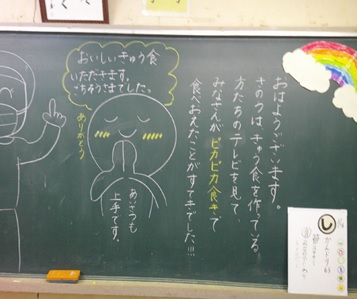 おはようございます。
きのうは きゅう食を作っている
方たちのテレビを見て、
みなさんが ピカピカ食きで
食べおえたことがすてきでした!!!
おいしいきゅう食
いただきます。
ごちそうさまでした。
ありがとう
あいさつも
上手です。
し